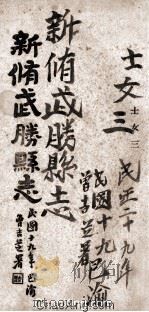 士女三
士女三
新脩武勝縣志
民國十九年巴渝
曾吉芝署
新脩武勝縣志
民國十九年巴渝
曾吉芝署